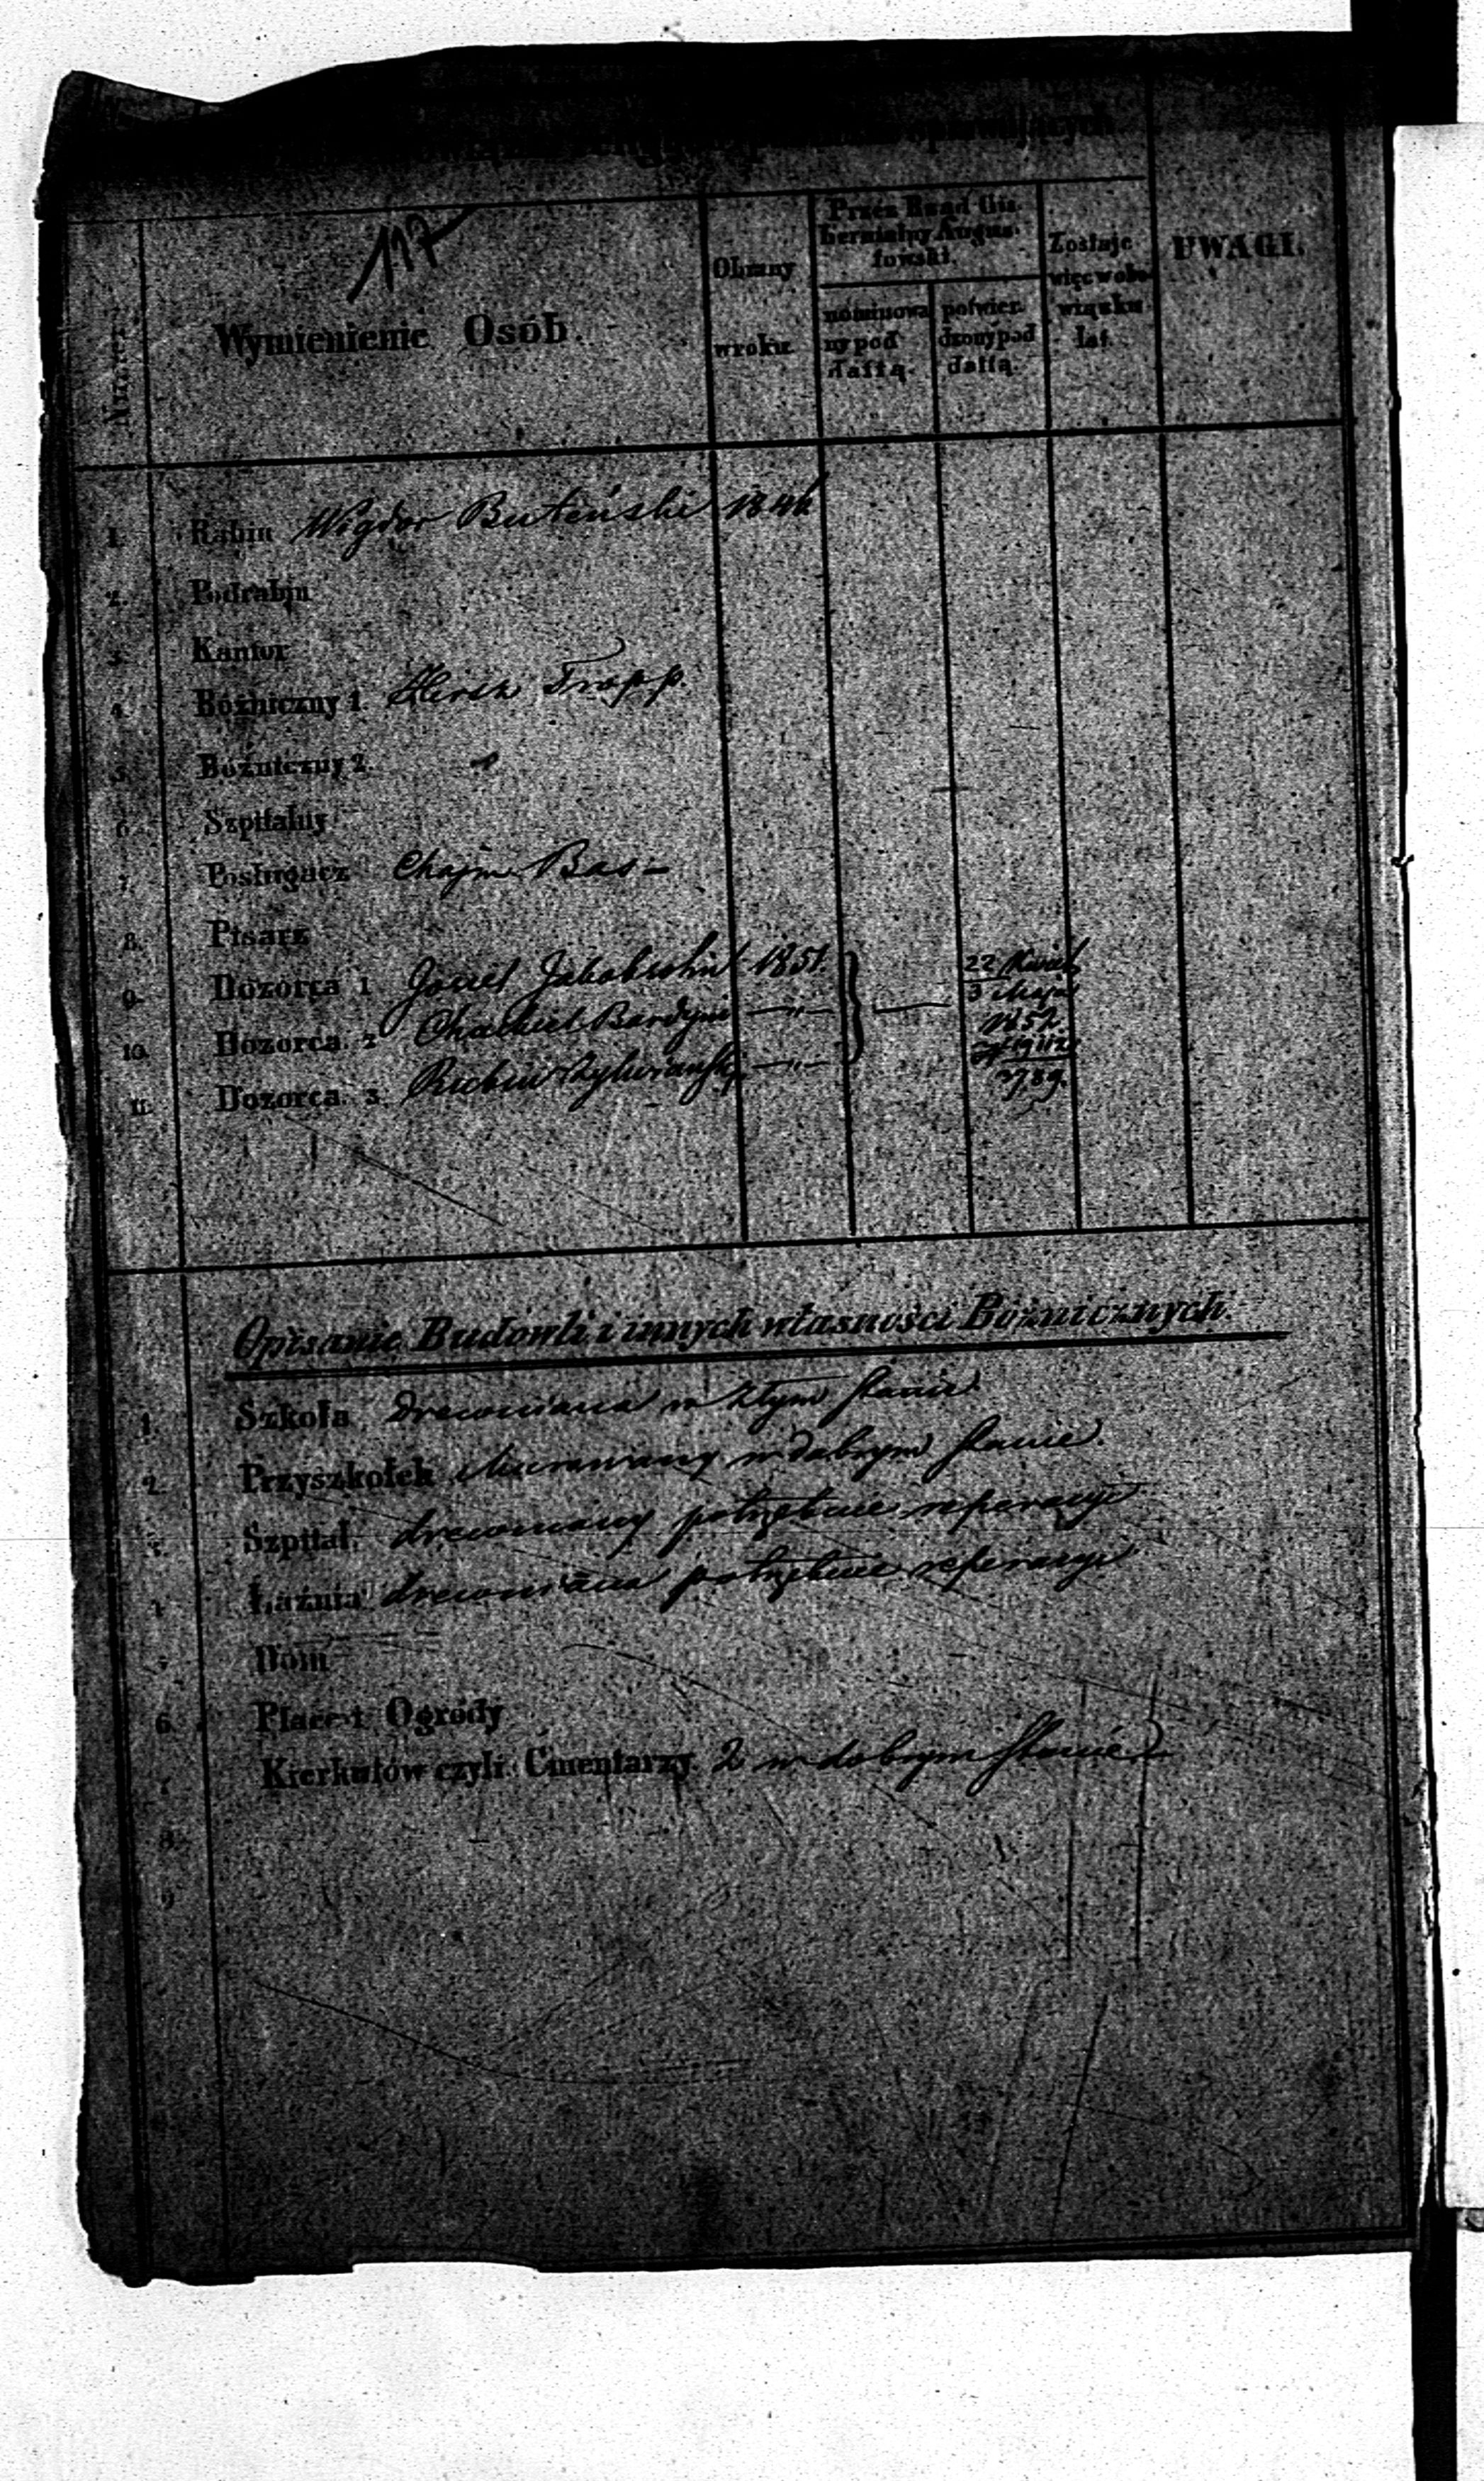 117
Numer
Wymienienie Osób
Obrany w roku
Przez Rząd Gubernialny Augustowski.
nominowany pod dattą.
potwierdzony pod dattą.
Zostaje więc w obowiązku lat.
UWAGI.
1. Rabin Wigdor Buteński 1846
2. Podrabin
3. Kantor
4. Bóźniczny 1. Hersz Tropp.
5. Bóźniczny 2.
6. Szpitalny
7. Posługacz Chajm Bas –
8. Pisarz
9. Dozorca 1. 1851. 22 3 Maja
10. Dozorca. 2 Chackiel —"— 1852
11. Dozorca. 3. Rubin —"— 2789.
Opisanie Budowli i innych własności Bóżnicznych.
1. Szkoła drewniana w złym stanie
2. Przyszkołek murowany w dobrym stanie.
3. Szpital. drewniany potrzebuie reperacyi
4. Łaźnia drewniana potrzebuie reperacyi
Dom
6. Place i Ogrody
Kierkutów czyli Cmentarzy. 2 w dobrym stanie
8.
9